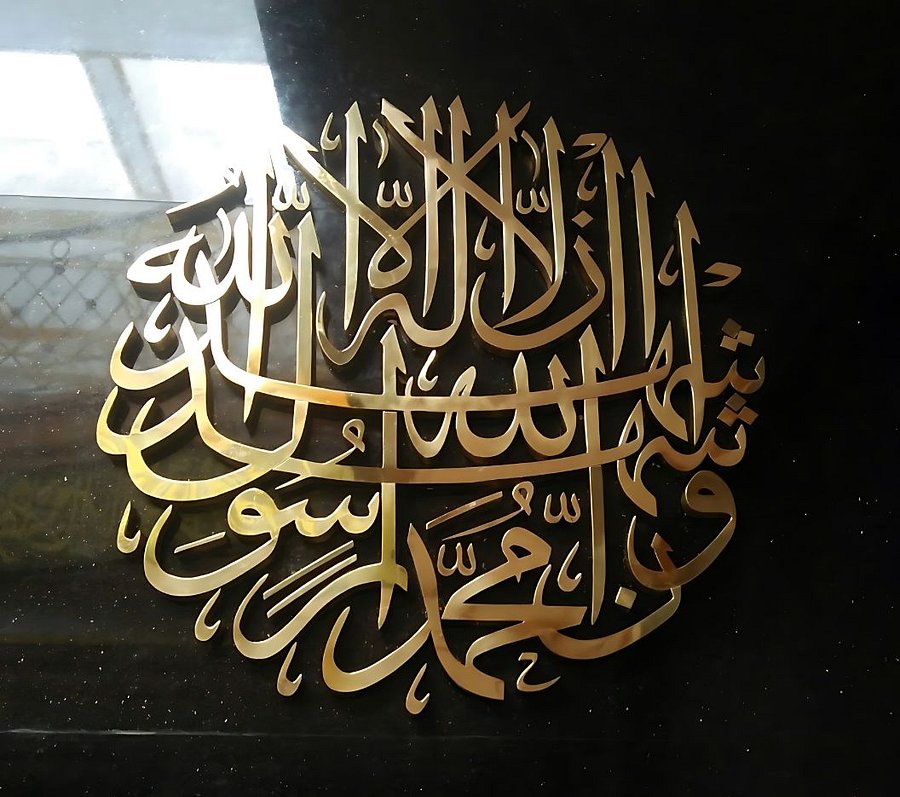 اشهد ان لا اله الا الله
واشهد ان محمدا رسول الله